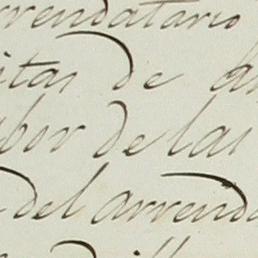 arrendatario
itas de a
bor de las
del arrenda